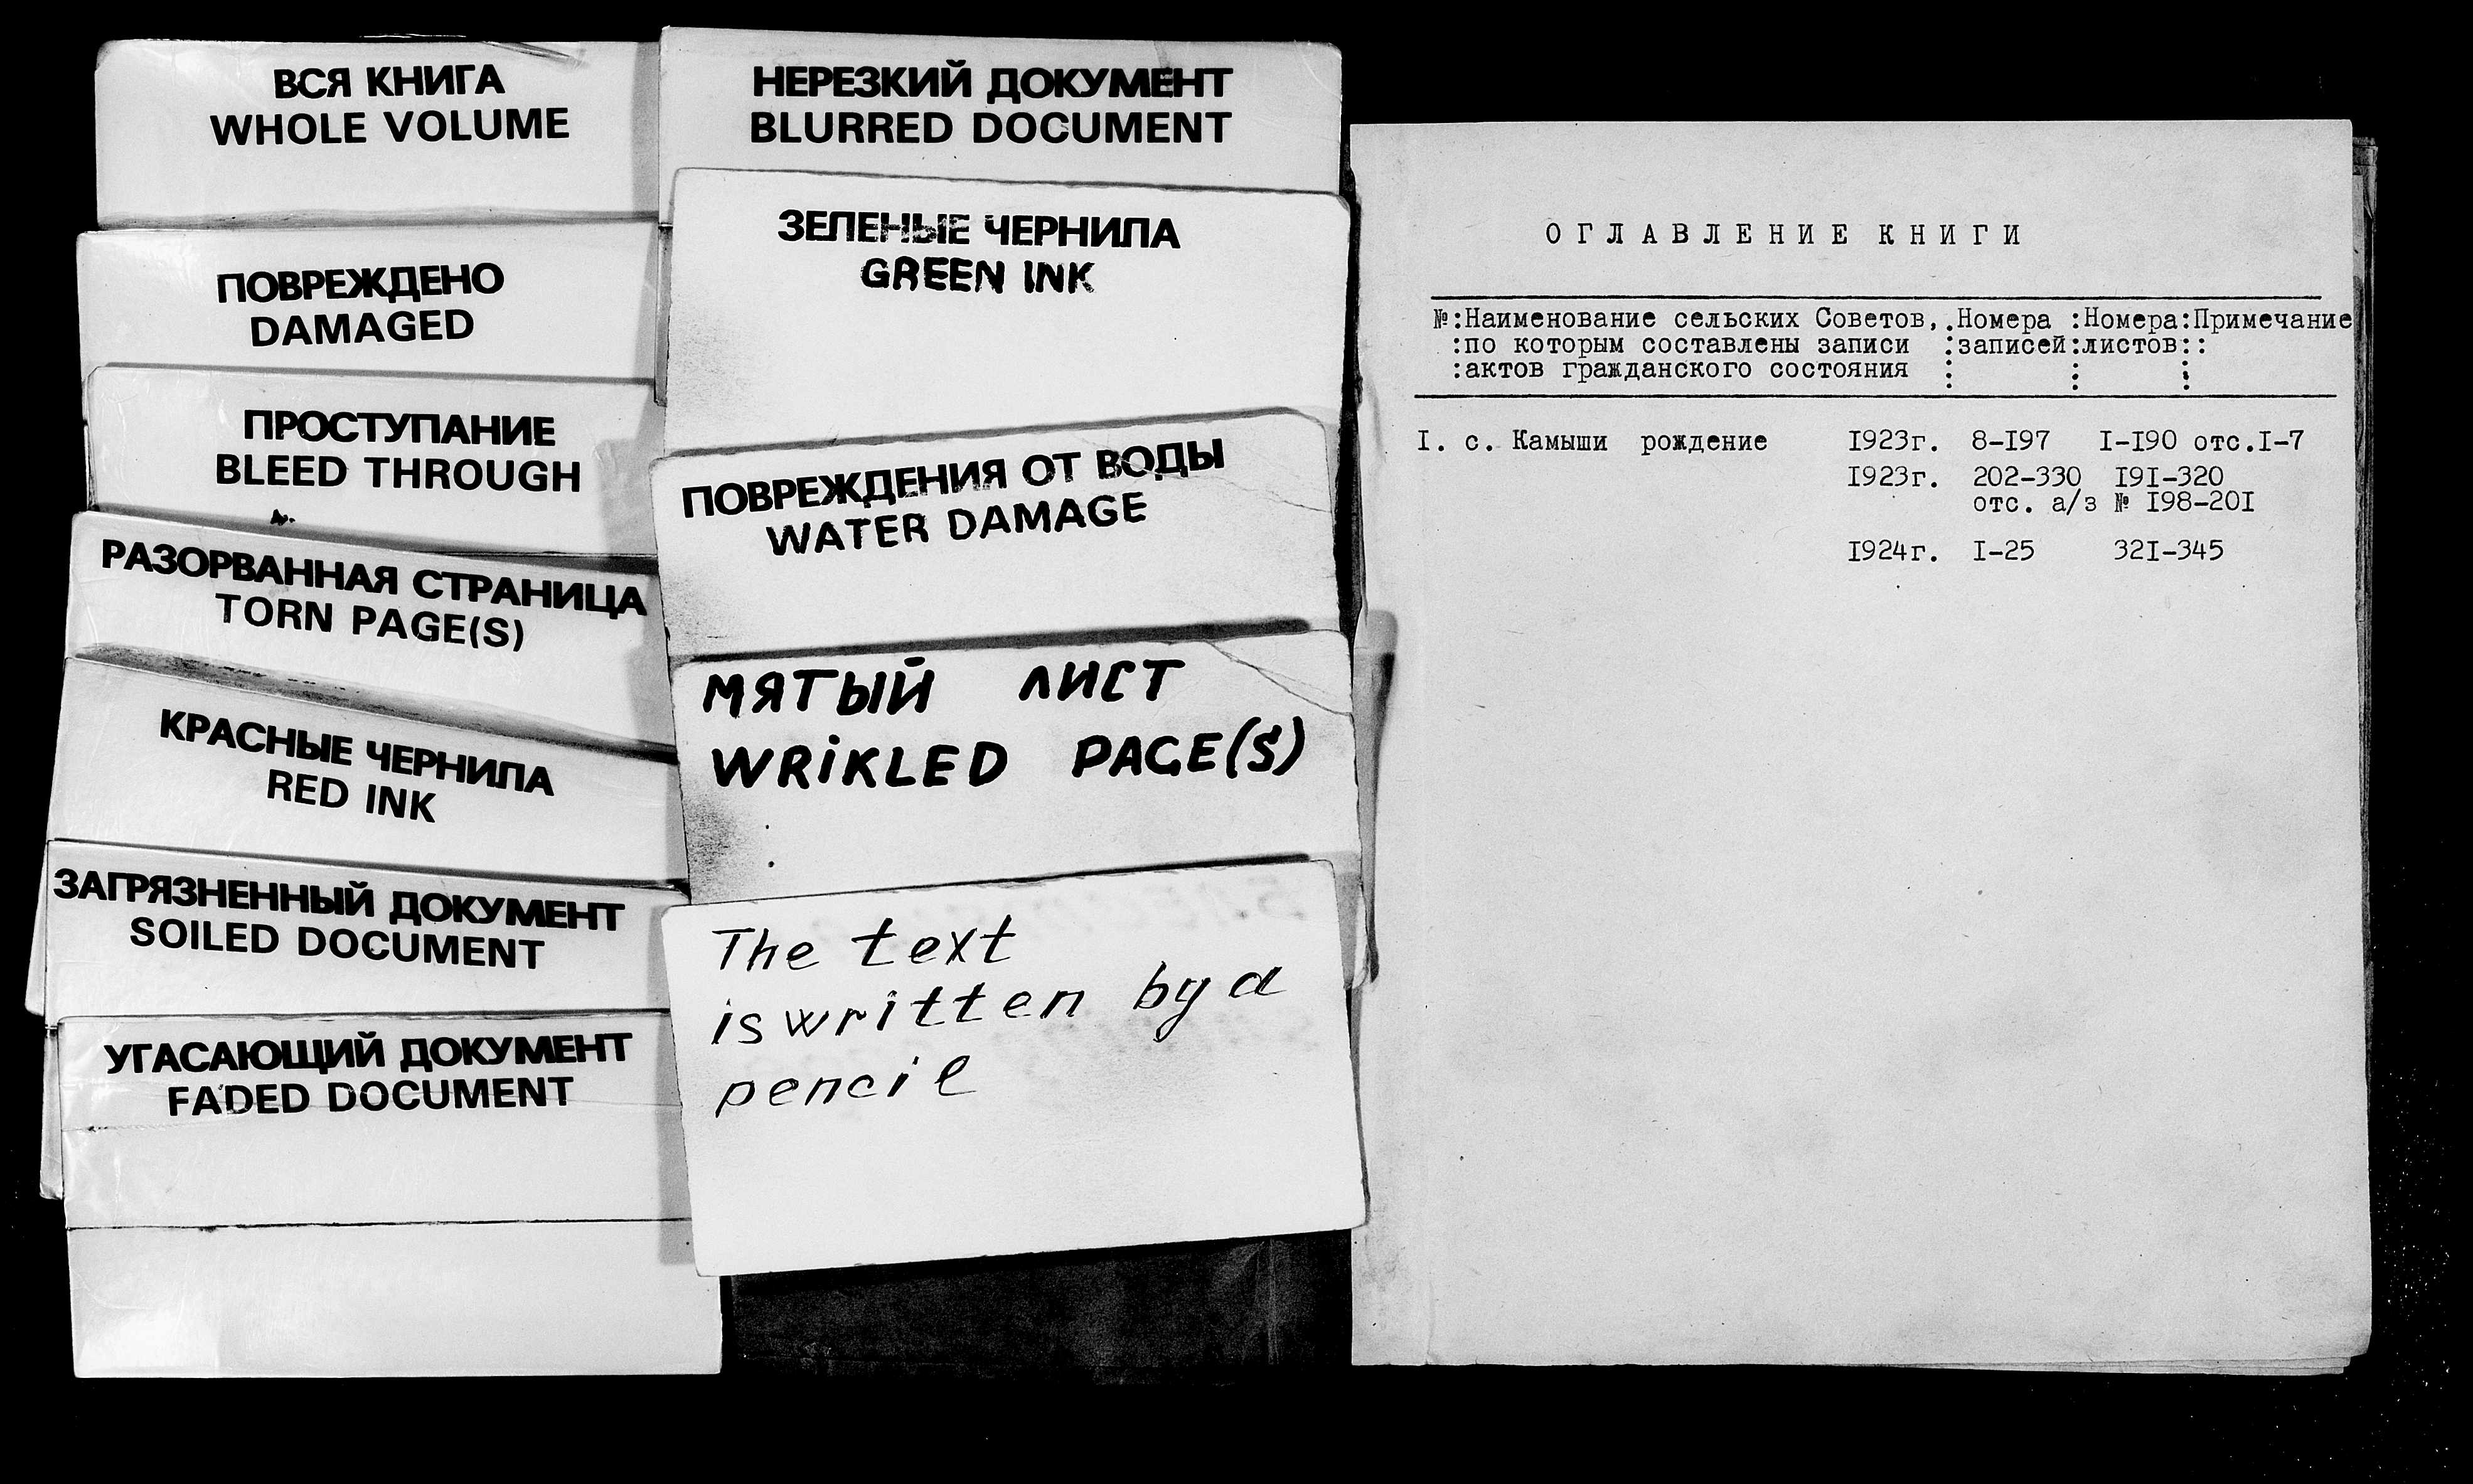 ВСЯ КНИГА
WHOLE VOLUME
ПОВРЕЖДЕНО
DAMAGED
ПРОСТУПАНИЕ
BLEED THROUGH
РАЗОРВАННАЯ СТРАНИЦА
TORN PAGE(S)
КРАСНЫЕ ЧЕРНИЛА
RED INK
ЗАГРЯЗНЕННЫЙ ДОКУМЕНТ
SOILED DOCUMENT
УГАСАЮЩИЙ ДОКУМЕНТ
FADED DOCUMENT
НЕРЕЗКИЙ ДОКУМЕНТ
BLURRED DOCUMENT
ЗЕЛЕНЫЕ ЧЕРНИЛА
GREEN INK
ПОВРЕЖДЕНИЯ ОТ ВОДЫ
WATER DAMAGE
МЯТЫЙ ЛИСТ
WRiKLED PAGE(S)
The text
is written by a
pencil
ОГЛАВЛЕНИЕ КНИГИ
№:Наименование сельских Советов,.Номера :Номера:Примечание
:по которым составлены записи :записей:листов::
:актов гражданского состояния : : :
I. с. Камыши рождение I923г. 8-I97 I-I90 отс.I-7
I923г. 202-330 I9I-320
отс. а/з № I98-20I
I924г. I-25 32I-345